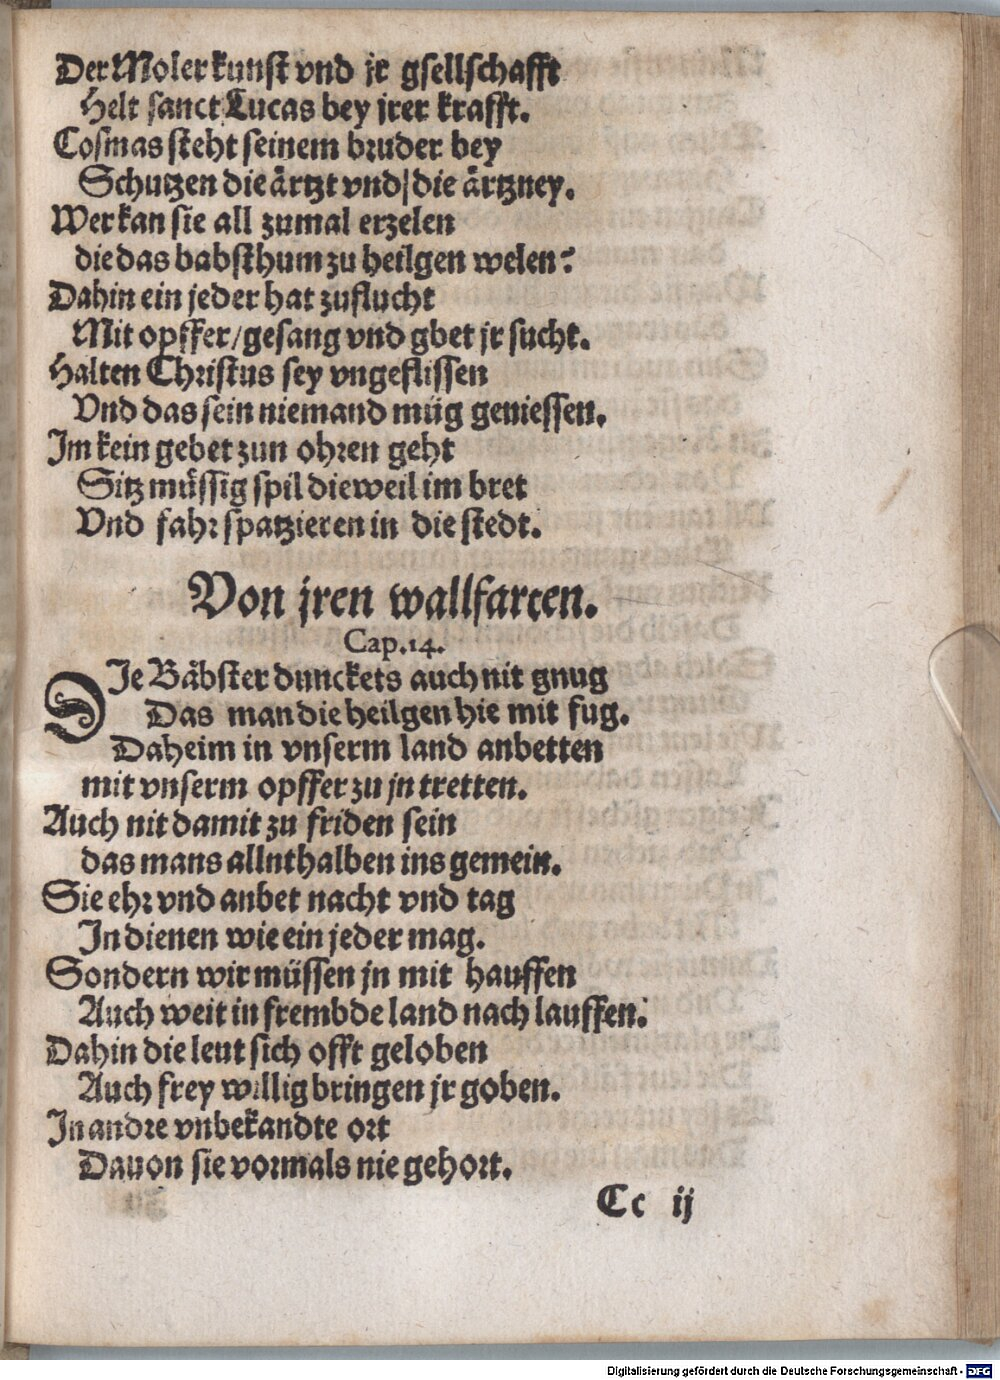 Der Moler kunst vnd jr gsellschafft
Helt sanct Lucas bey jrer krafft.
Cosmas steht seinem bruder bey
Schutzen die ärtzt vnd/die ärtzney.
Wer kan sie all zumal erzelen
die das babsthum zu heilgen welen?
Dahin ein jeder hat zuflucht
Mit opffer/gesang vnd gbet jr sucht.
Halten Christus sey vngeflissen
Vnd das sein niemand müg geniessen.
Im kein gebet zun ohren geht
Sitz müssig spil dieweil im bret
Vnd fahr spatzieren in die stedt.
Von jren wallfarten.
Cap.14.
DJe Bäbster dunckets auch nit gnug
Das man die heilgen hie mit fug.
Daheim in vnserm land anbetten
mit vnserm opffer zu jn tretten.
Auch nit damit zu friden sein
das mans allnthalben ins gemein.
Sie ehr vnd anbet nacht vnd tag
In dienen wie ein jeder mag.
Sondern wir müssen jn mit hauffen
Auch weit in frembde land nach lauffen.
Dahin die leut sich offt geloben
Auch frey willig bringen jr goben.
In andre vnbekandte ort
Dauon sie vormals nie gehort.
Cc ij
Digitalisierung gefördert durch die Deutsche Forschungsgemeinschaft - DFG